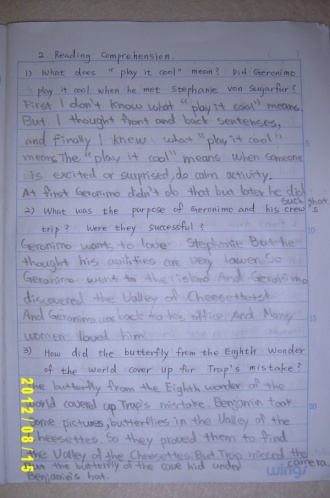 2. Reading Comprehension.
1) What does "play it cool" mean? Did Geronimo
play it cool when he met Stephanie von Sugarfur?
First I don't know what "play it cool" means.
But I thought front and back sentences,
and finally I knew what "play it cool"
means. The "play it cool" means when someone
is excited or surprised, do calm activity.
At first Geronimo didn't do that but later he did
such that.
2) What was the purpose of Geronimo and his crew's
trip? Were they successful?
Geronimo want to love Stephanie But he
thought his are very lower. So
Geronimo went to the island And Geronimo
discovered the Valley of Cheesettest
And Geronimo back to his office. And Many
women loved him.
3) How did the butterfly from the Eighth Wonder
of the world cover up for Trap's mistake?
The butterfly from the Eighth wonder of the
world coverd up Trap's mistake. Benjamin took
some pictures, butterflies in the Valley of the
Cheesettes. So they proved them to find
the Valley of the Cheesettes. But Trap missed the
camera.
But the butterfly of the cave hid under
Benjamin's hat.
wings
2012/08/05